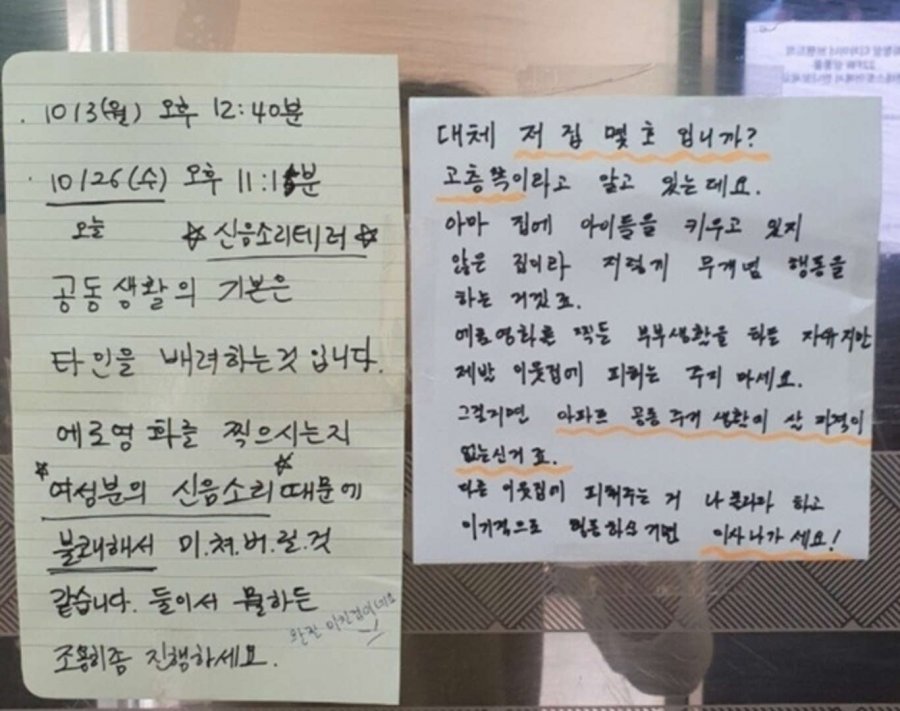 10 13(월) 오후 12:40분
10/26(수) 오후 11:15분
오늘 ☆신음소리테러☆
공동생활의 기본은
타인을 배려하는것 입니다.
에로영화를 찍으시는지
☆여성분의 신음소리☆ 때문에
불쾌해서 미.쳐.버.릴.것
같습니다. 둘이서 뭘하든
조용히좀 진행하세요.
완전 미친집이네요
대체 저 집 몇 호 입니까?
고층쪽이라고 알고 있는데요.
아마 집에 아이들을 키우고 있지
않은 집이라 저렇게 무개념 행동을
하는 거겠죠.
에로영화를 찍든 부부생활을 하든 자유지만
제발 이웃집에 피해는 주지 마세요.
그럴거면 아파트 공동 주거 생활에 살 자격이
없는신거죠.
다른 이웃집에 피해주는 거 나 몰라라 하고
이기적으로 행동하실거면 이사나가세요!